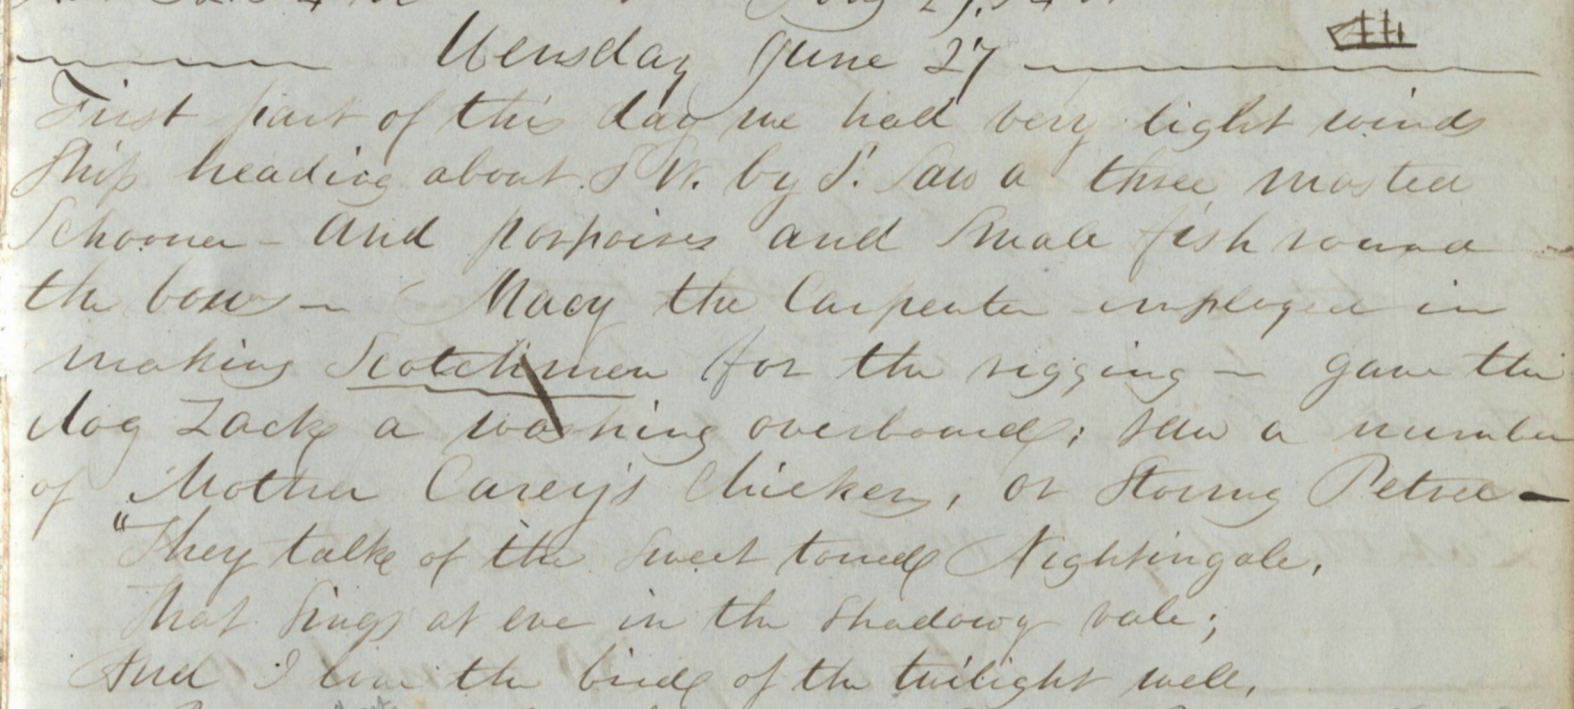 Wensday June 27
First part of this day we had very light winds
Ship heading about S W. by S. Saw a three masted
Schooner - and porpoises and small fish round
the bows - Macy the Carpenter employed in
making Scotchmen for the rigging - gave the
dog Zack a washing overboard; saw a number
of Mother Carey's Chickens, or Stormy Petrel -
"They talk of the sweet toned Nightingale,
That Sings at eve in the Shadowy vale;
And I love the bird of the twilight well,